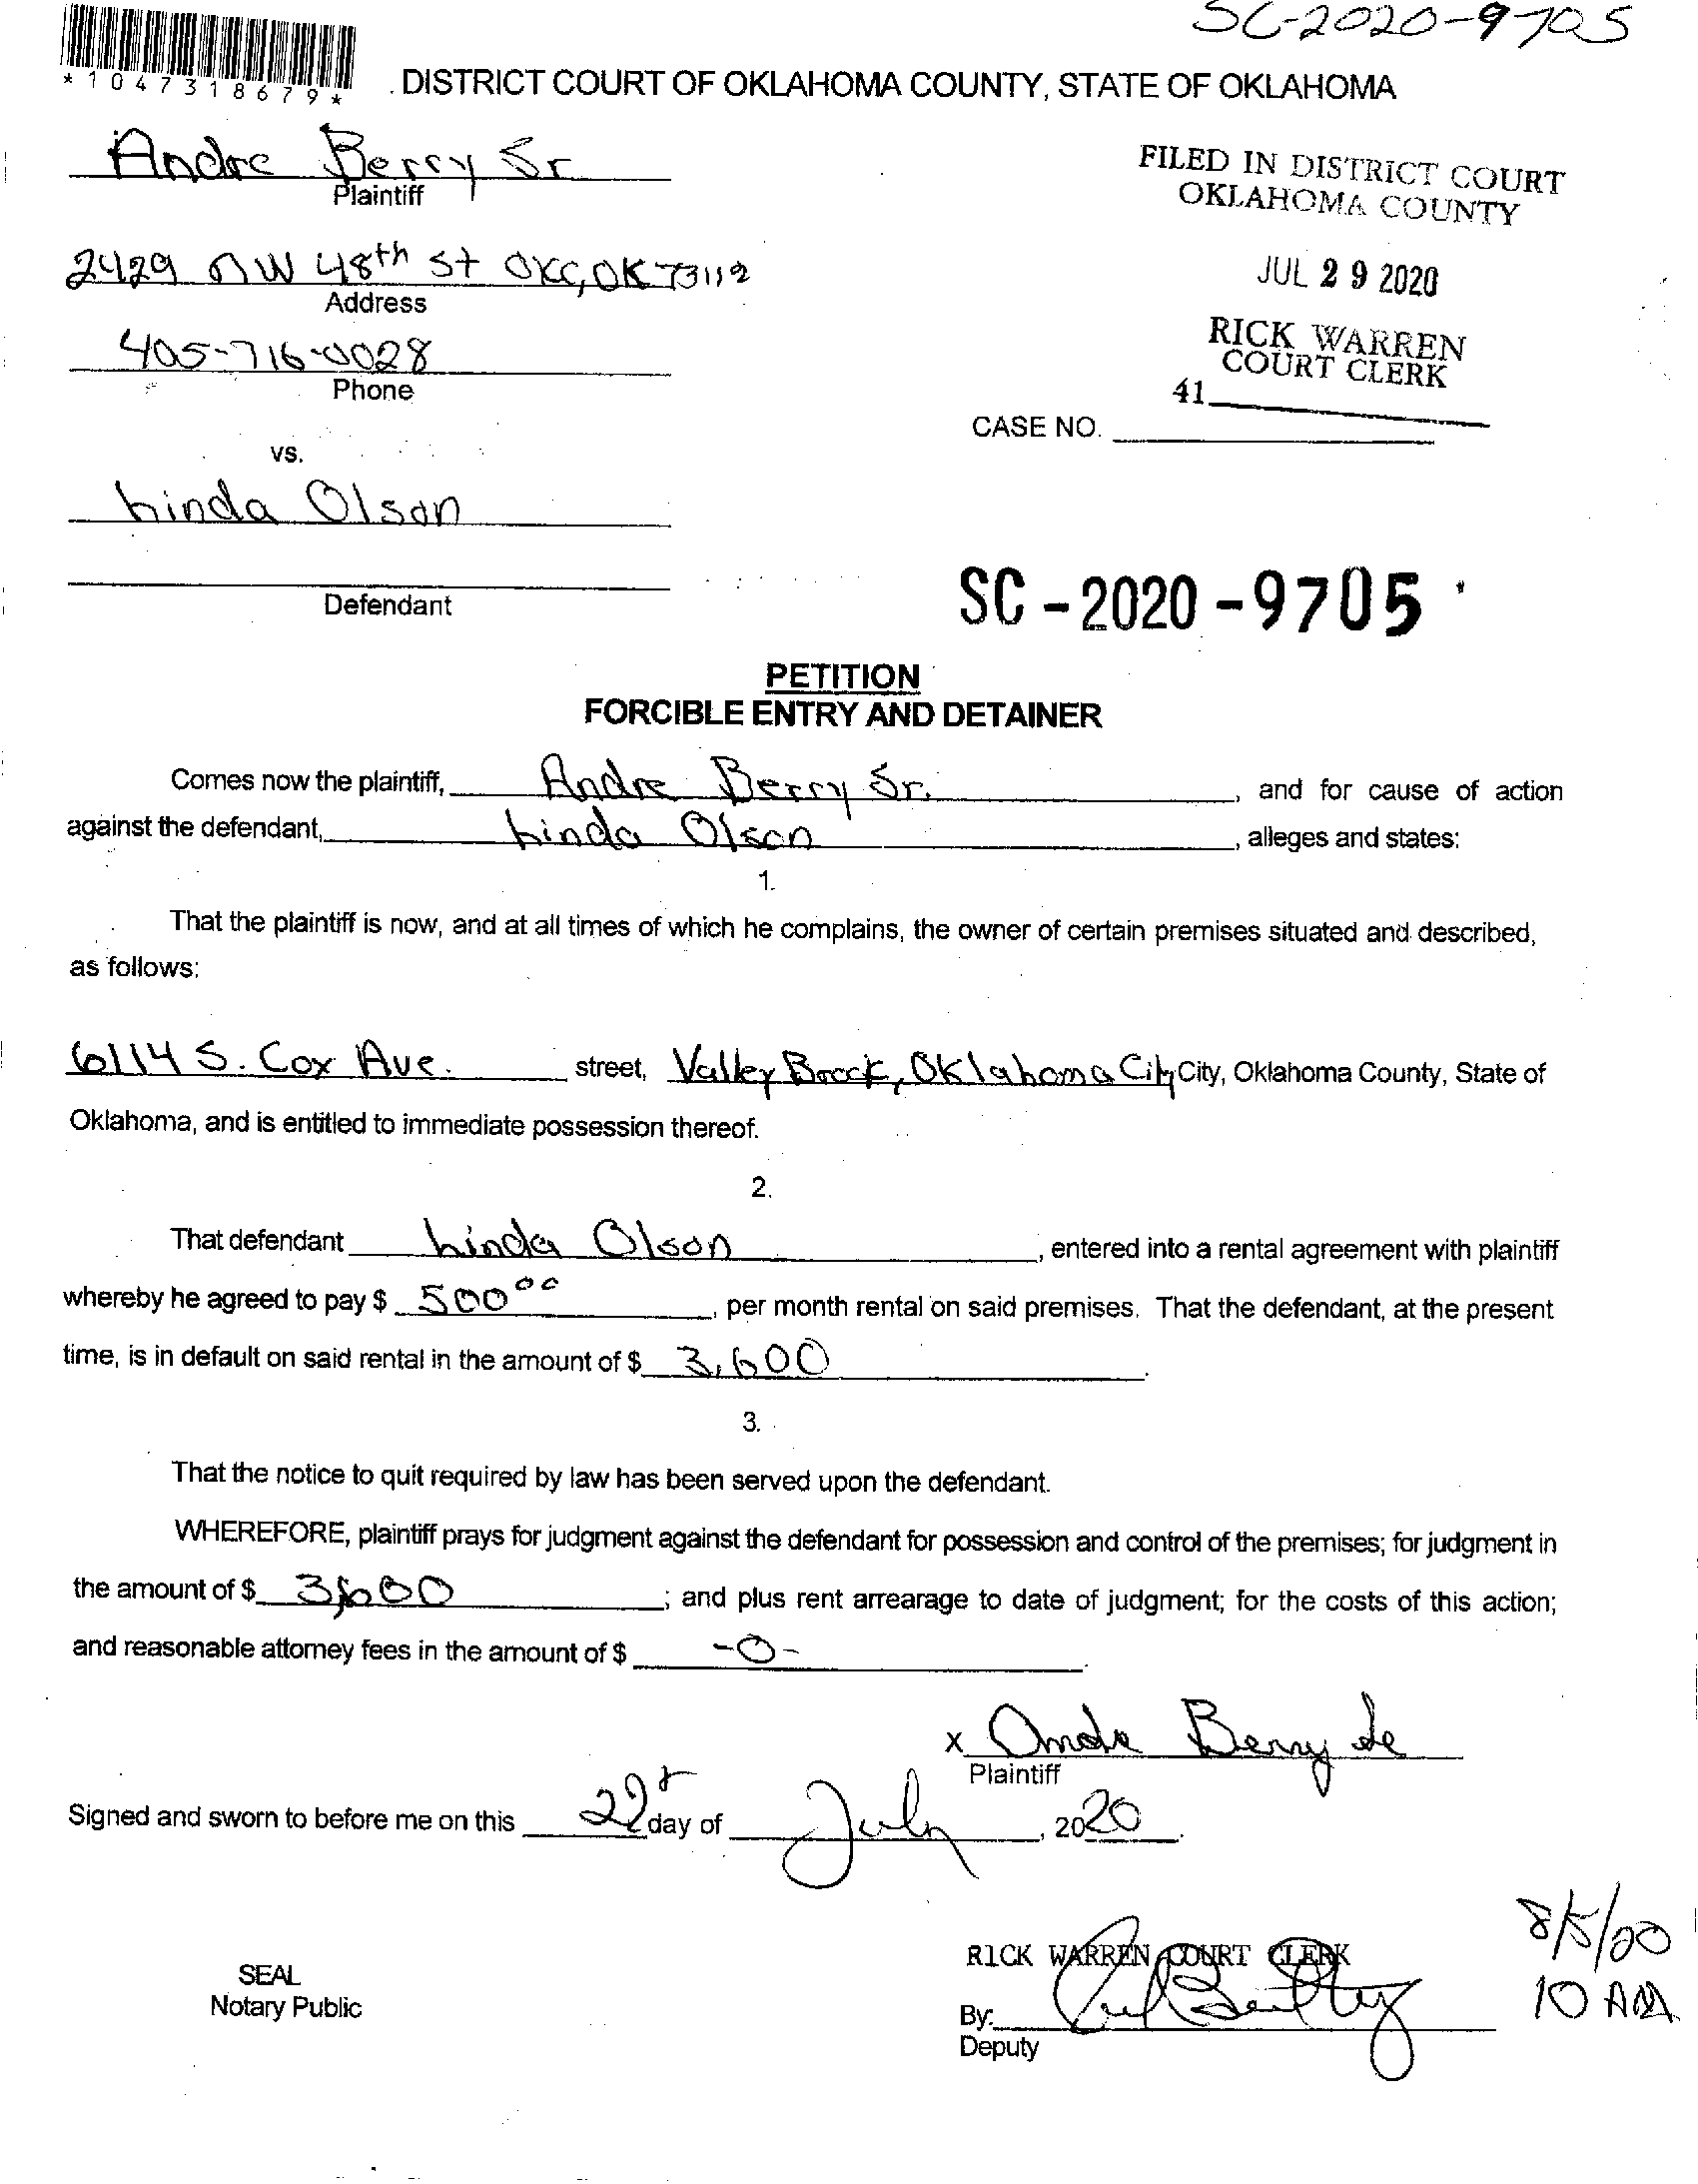 SC-2020-9705
*1047318679*
. DISTRICT COURT OF OKLAHOMA COUNTY, STATE OF OKLAHOMA
Andre Berry Sr
Plaintiff
FILED IN DISTRICT COURT
OKLAHOMA COUNTY
2429 NW 48th St OKC, OK 73112
Address
JUL 29 2020
405-716-0028
Phone
RICK WARREN
COURT CLERK
41
CASE NO.
vs.
Linda Olson
Defendant
SC-2020-9705
PETITION
FORCIBLE ENTRY AND DETAINER
Comes now the plaintiff, Andre Berry Sr. , and for cause of action
against the defendant, Linda Olson , alleges and states:
1.
That the plaintiff is now, and at all times of which he complains, the owner of certain premises situated and described,
as follows:
6114 S. Cox Ave. street, Valley Brook, Oklahoma City City, Oklahoma County, State of
Oklahoma, and is entitled to immediate possession thereof.
2.
That defendant Linda Olson , entered into a rental agreement with plaintiff
whereby he agreed to pay $ 500 00 , per month rental on said premises. That the defendant, at the present
time, is in default on said rental in the amount of $ 3,600 .
3.
That the notice to quit required by law has been served upon the defendant.
WHEREFORE, plaintiff prays for judgment against the defendant for possession and control of the premises; for judgment in
the amount of $ 3,600 ; and plus rent arrearage to date of judgment; for the costs of this action;
and reasonable attorney fees in the amount of $ -0- .
x Andre Berry Sr
Plaintiff
Signed and sworn to before me on this day of July , 2020 .
8/5/20
10 AM
RICK WARREN COURT CLERK
SEAL
Notary Public
By:
Deputy